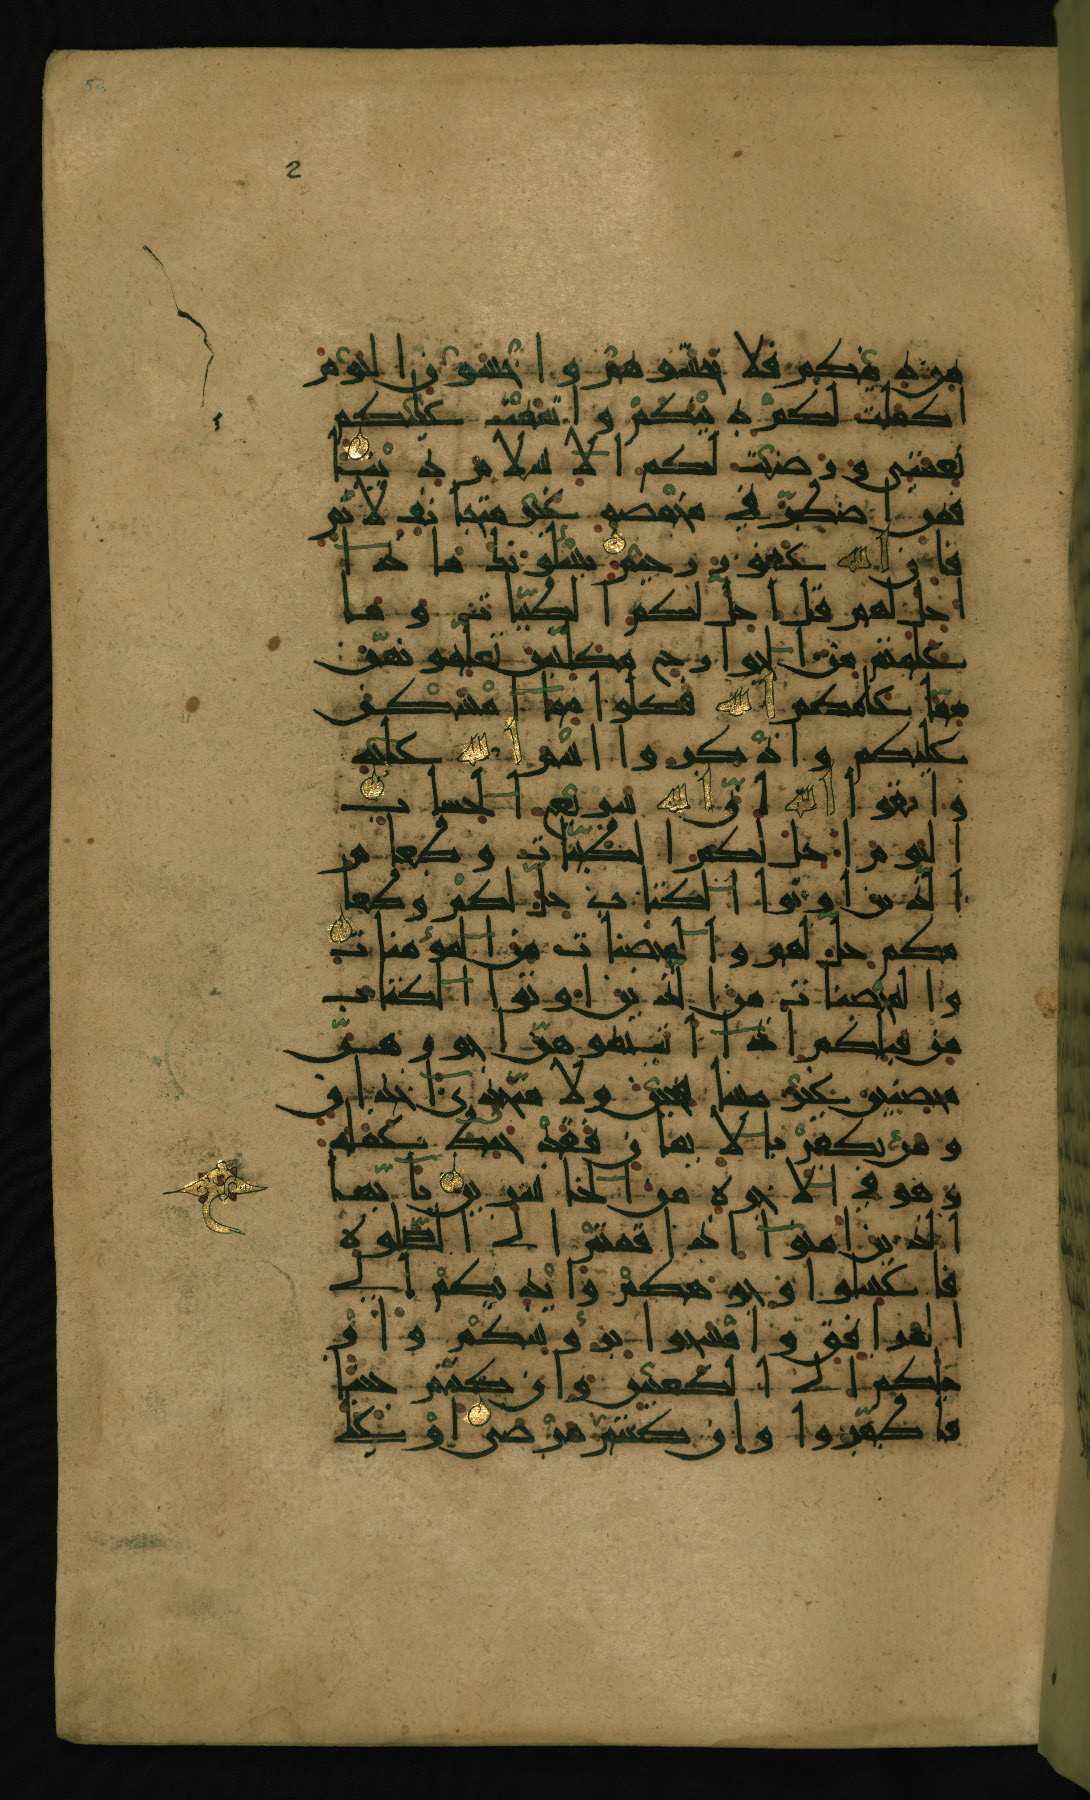 52
2
من دينكم فلا تخشوهم واخشون اليوم
اكملت لكم دينكم واتممت عليكم
نعمتي ورضيت لكم الاسلام دينا
فمن اضطر في مخمصة غير متجانف لاثم
فان الله غفور رحيم يسئلونك ماذا
احل لهم قل احل لكم الطيبات وما
علمتم من الجوارح مكلبين تعلمونهن
مما علمكم الله فكلوا مما امسكن
عليكم واذكروا اسم الله عليه
واتقوا الله ان الله سريع الحساب
اليوم احل لكم الطيبات وطعام
الذين اوتوا الكتاب حل لكم وطعا
مكم حل لهم والمحصنات من المؤمنات
والمحصنات من الذين اوتوا الكتاب
من قبلكم اذا اتيتموهن اجورهن
محصنين غير مسافحين ولا متخذي اخدان
ومن يكفر بالايمان فقد حبط عمله
وهو في الاخرة من الخاسرين يا ايها
الذين امنوا اذا قمتم الى الصلوة
فاغسلوا وجوهكم وايديكم الى
المرافق وامسحوا برؤسكم وار
جلكم الى الكعبين وان كنتم جنبا
فاطهروا وان كنتم مرضى او على